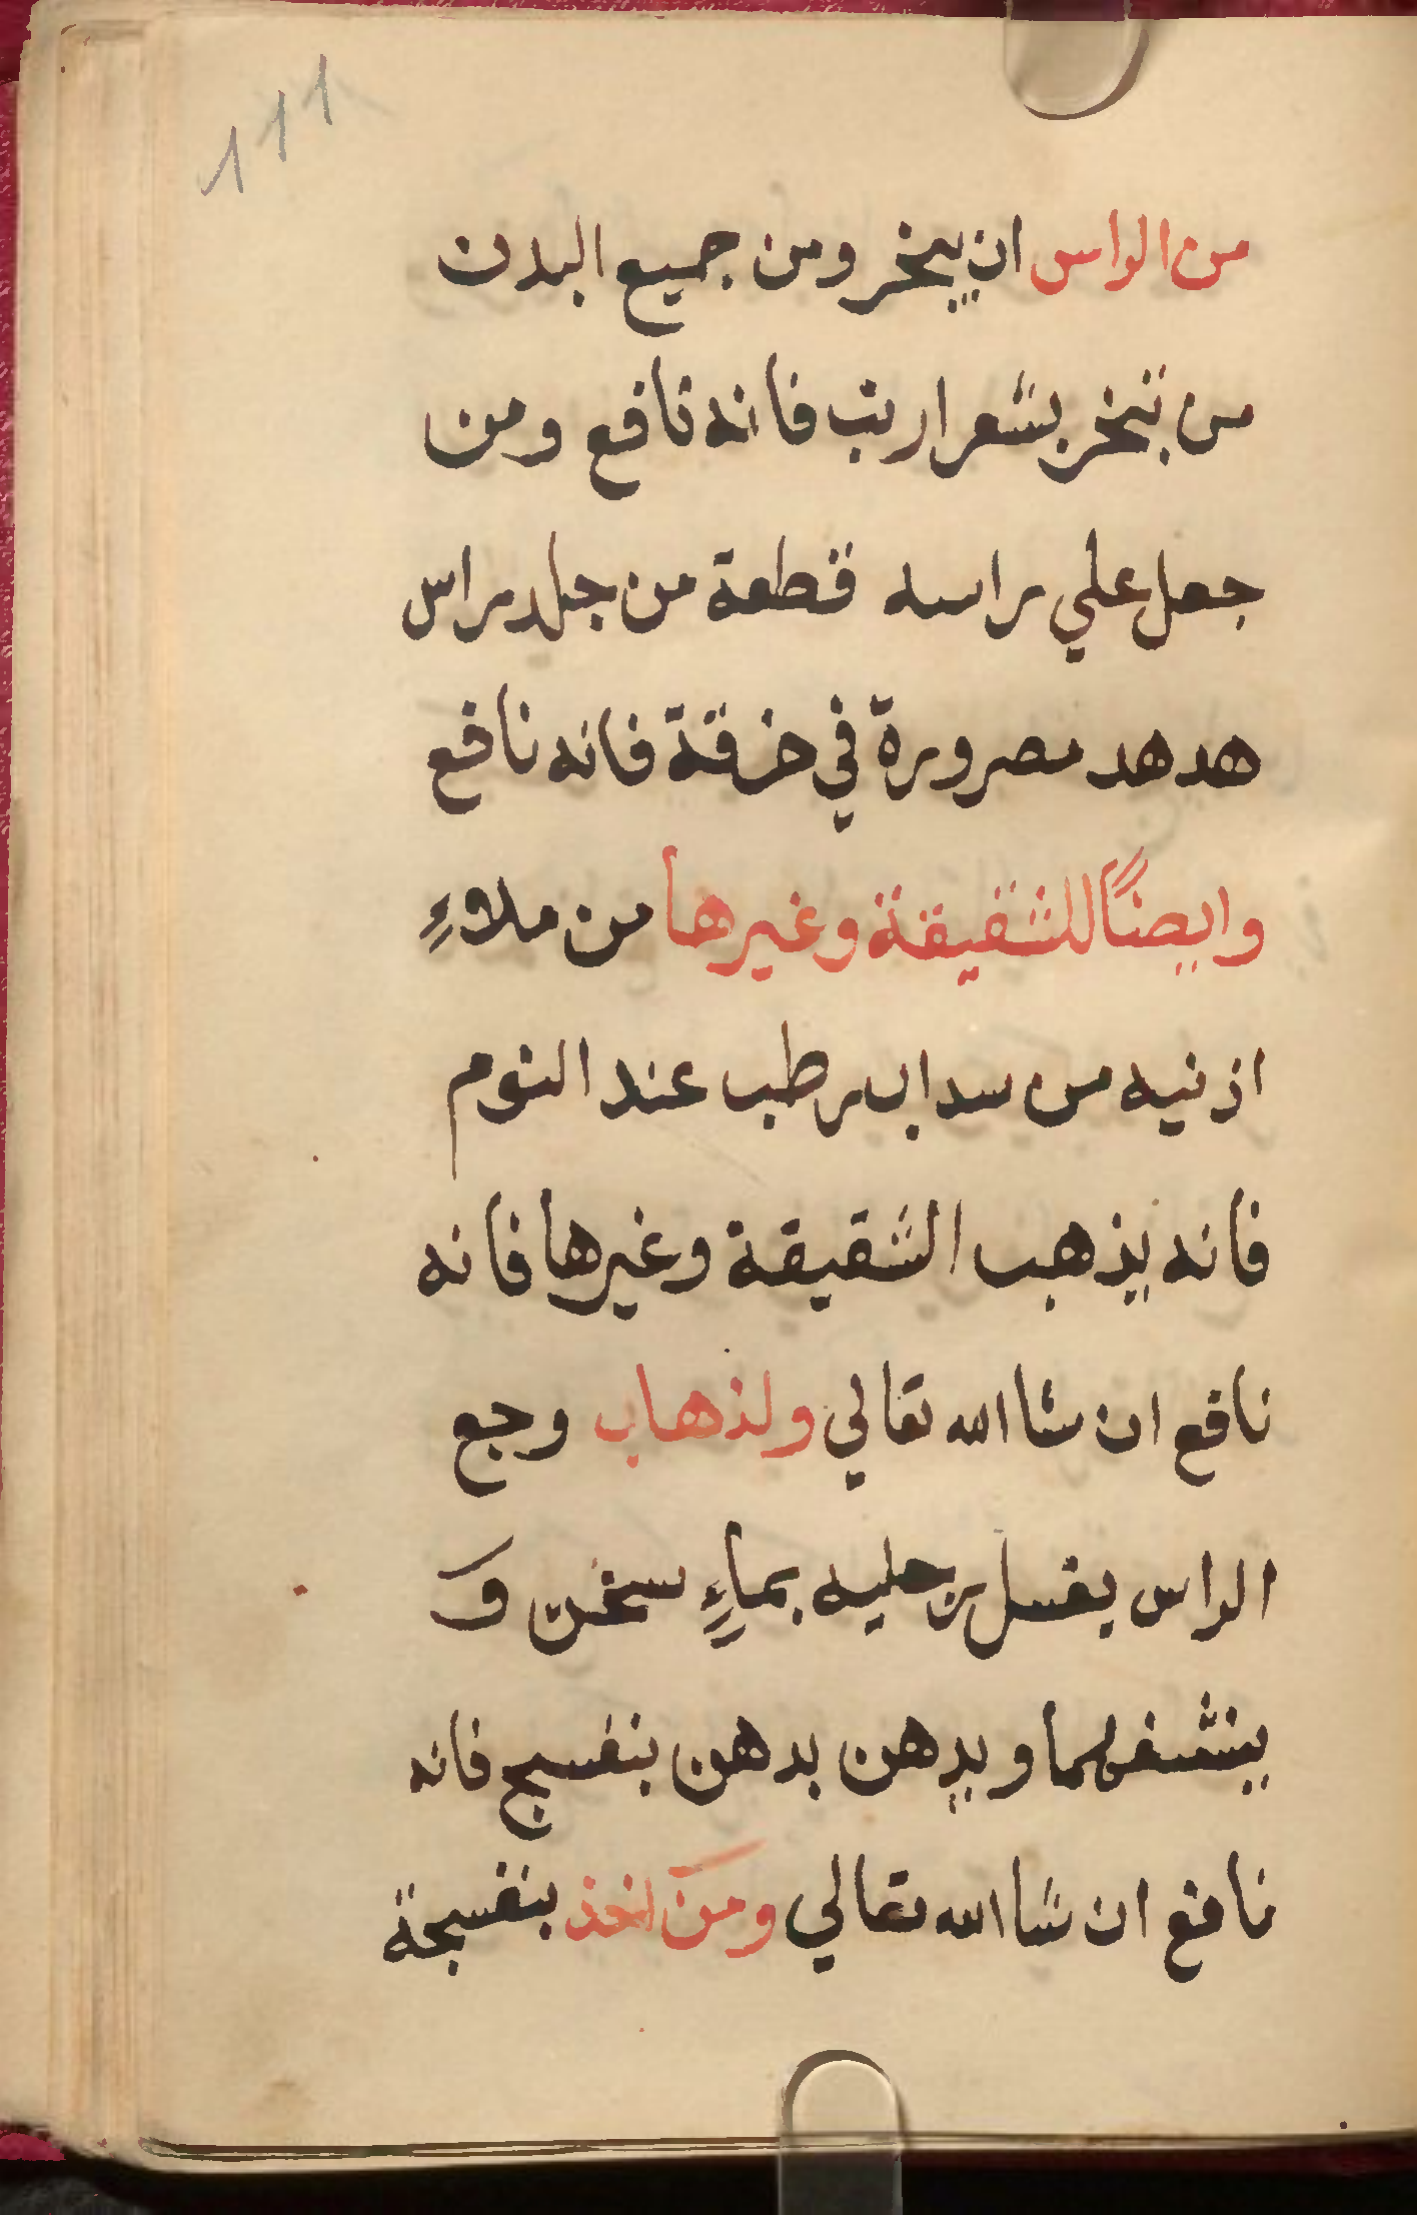 ١١١
من الراس ان يبخر ومن جميع البدن
من تبخر بشعر ارنب فانه نافع ومن
جعل علي راسه قطعة من جلد راس
هدهد مصرورة في خرقة فانه نافع
وايضًا للشقيقة وغيرها من ملاءٍ
اذنيه من سداب رطب عند النوم
فانه يذهب الشقيقة وغيرها فانه
نافع ان شا الله تعالي ولذهاب وجع
الراس يغسل رجليه بماءٍ سخن و
ينشفهما ويدهن بدهن بنفسج فانه
نافع ان شا الله تعالي ومن اخذ بنفسجة